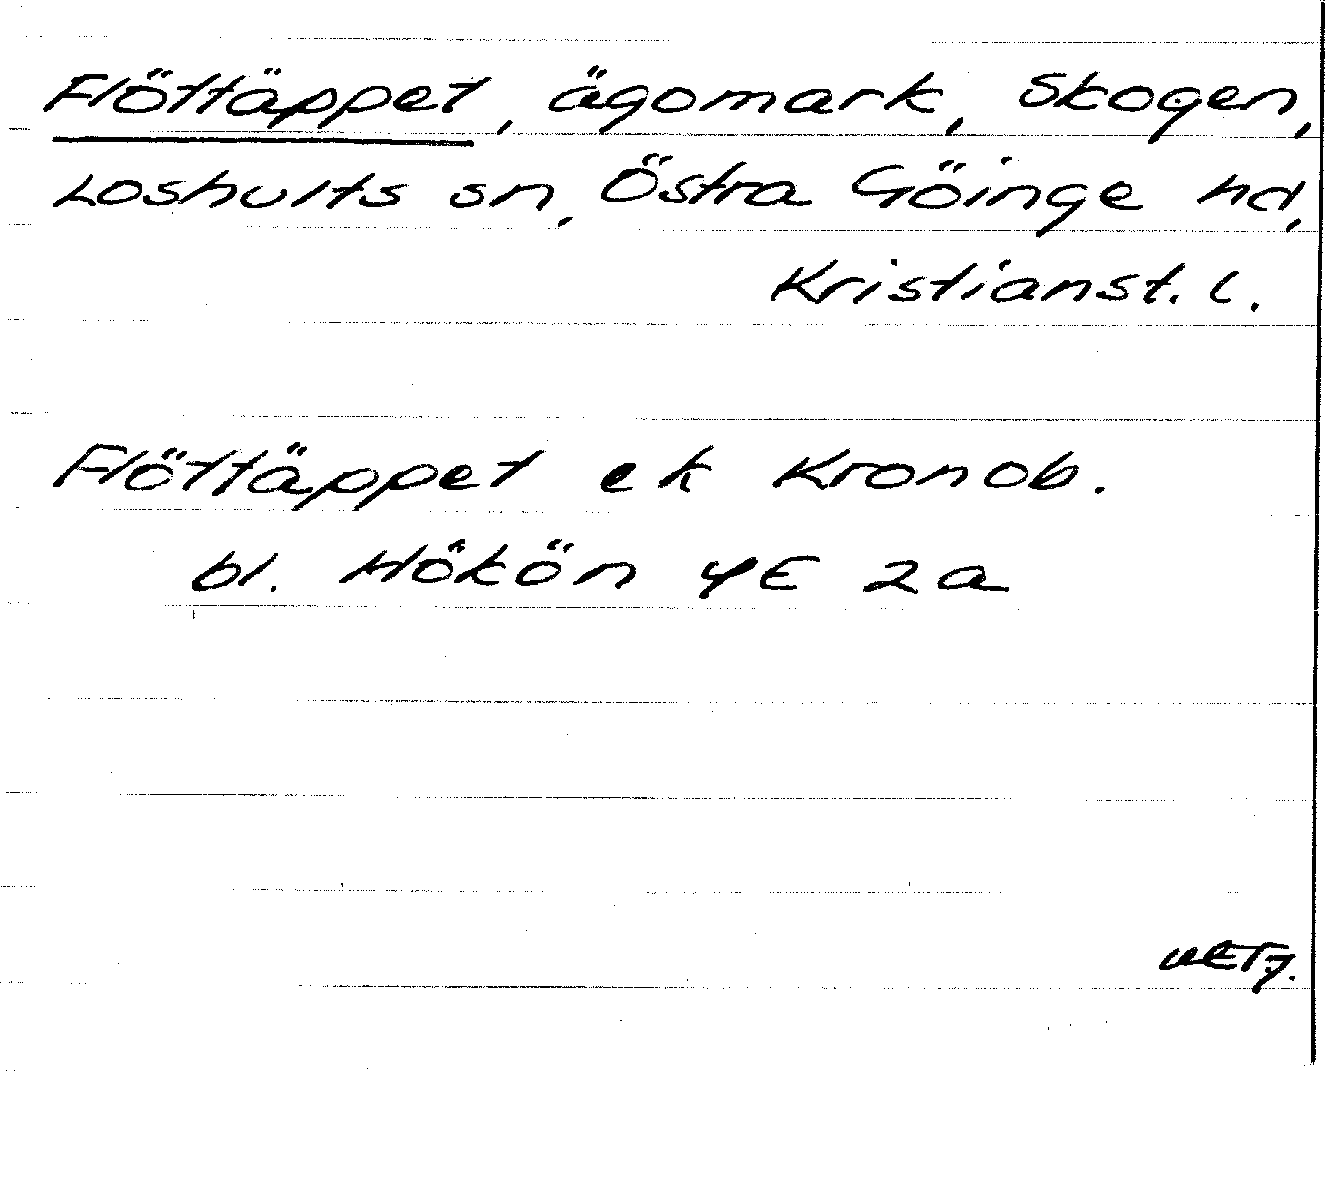 Flöttäppet, ägomark, Skogen,
Loshults sn, Östra Göinge hd,
Kristianst. l.
Flöttäppet ek Kronob.
bl. Hökön 4E 2a